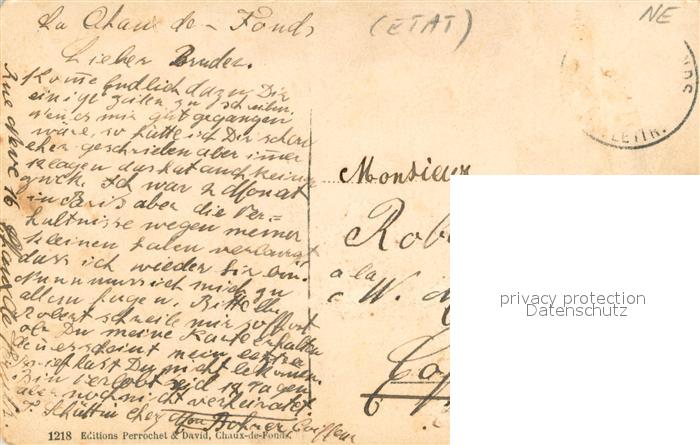 La Chaux-de-Fonds
(ETAT)
NE
Lieber Bruder.
Kome endlich dazu Dir
einige Zeilen zu schreiben,
wenn es mir gut gegangen
wäre, so hätte ich Dir schon
eher geschrieben aber immer
klagen das hat auch keinen
Zweck. Ich war 2 Monat
in Paris aber die Ver=
hältnisse wegen meiner
kleinen haben verlangt
dass ich wieder hir bin.
Nun muss ich mich zu
allem fügen. Bitte
Robert schreibe mir sofort
ob Du meine Karte erhalten
mein
hast Du nicht bekommen.
Bin verlobt seid 14 Tagen
aber noch nicht verheiratet.
chez Mon Coiffeur
Rue Neuve 16 Chaux de Fonds
Monsieur
Rob
a la
W.
1218 Editions Perrochet & David, Chaux-de-Fonds.
privacy protection
Datenschutz